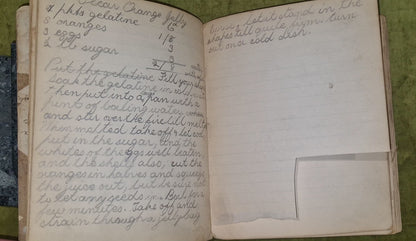 Clear Orange Jelly
4 pkts gelatine
8 oranges
3 eggs
2 lb sugar
Put the gelatine
Soak the gelatine in
Then put into a pan with a
pint of boiling water
and stir over the fire till melted
When melted take off & let cool
put in the sugar, and the
whites of the eggs well beaten
and the shells also, cut the
oranges in halves and squeeze
the juice out, but be sure not
to let any seeds in. Boil for a
few minutes. Take off and
strain through a jelly bag
twice, let it stand in the
shapes till quite firm, turn
out on a cold dish.